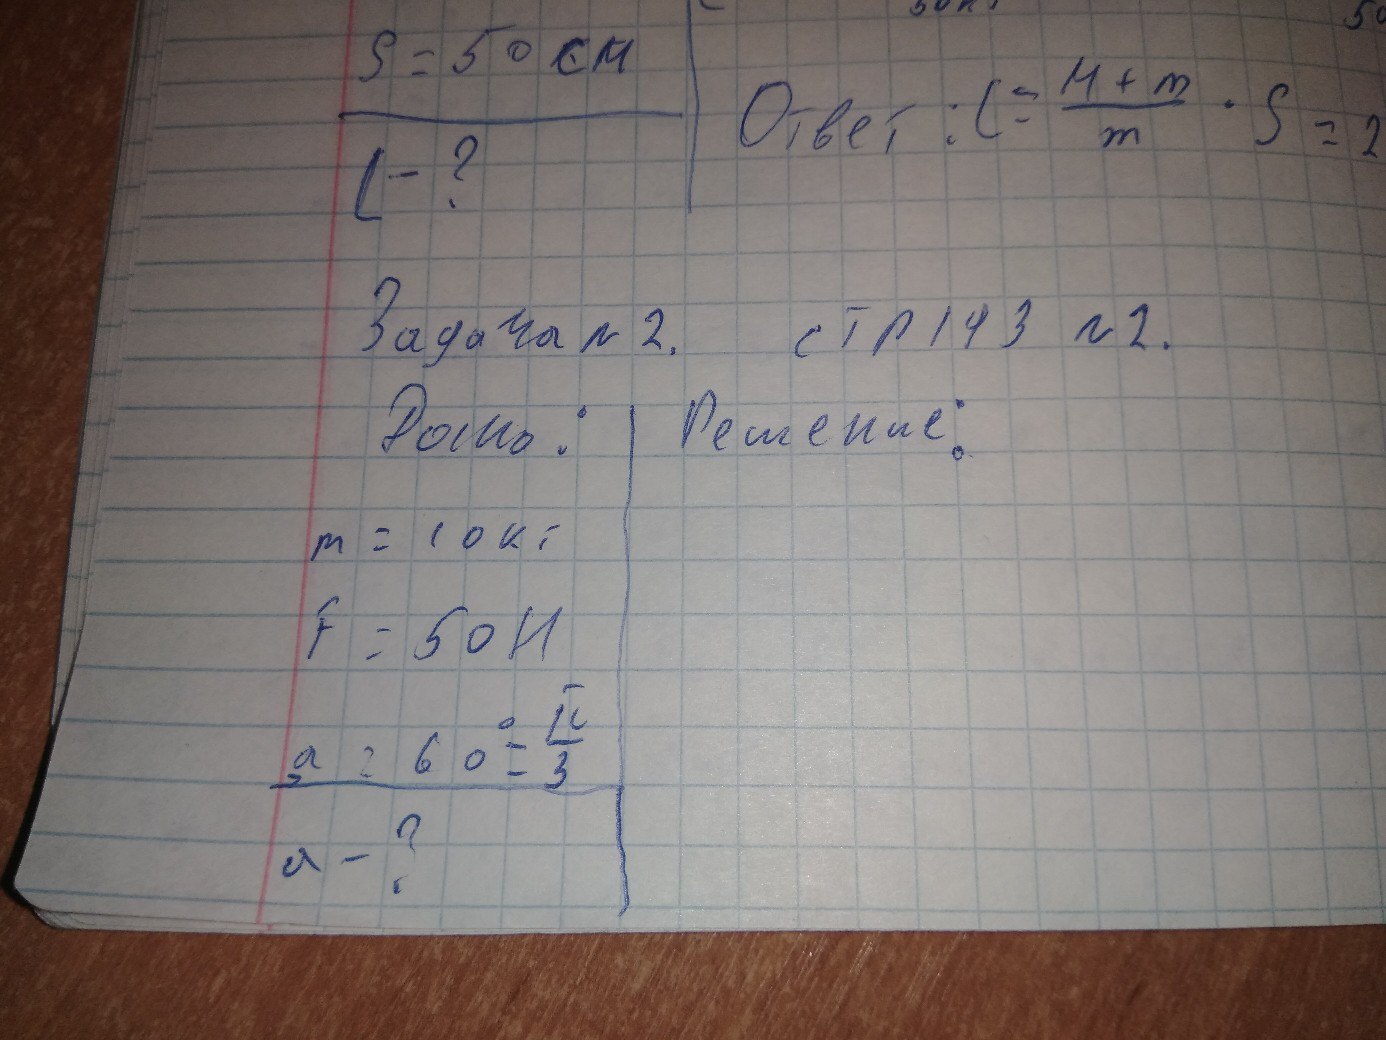 S = 50 см
l - ?
Ответ: l = M + m / m · S = 2
Задача №2. стр 143 №2.
Дано: Решение:
m = 10 кг
F = 50 Н
a = 60° = π/3
a - ?